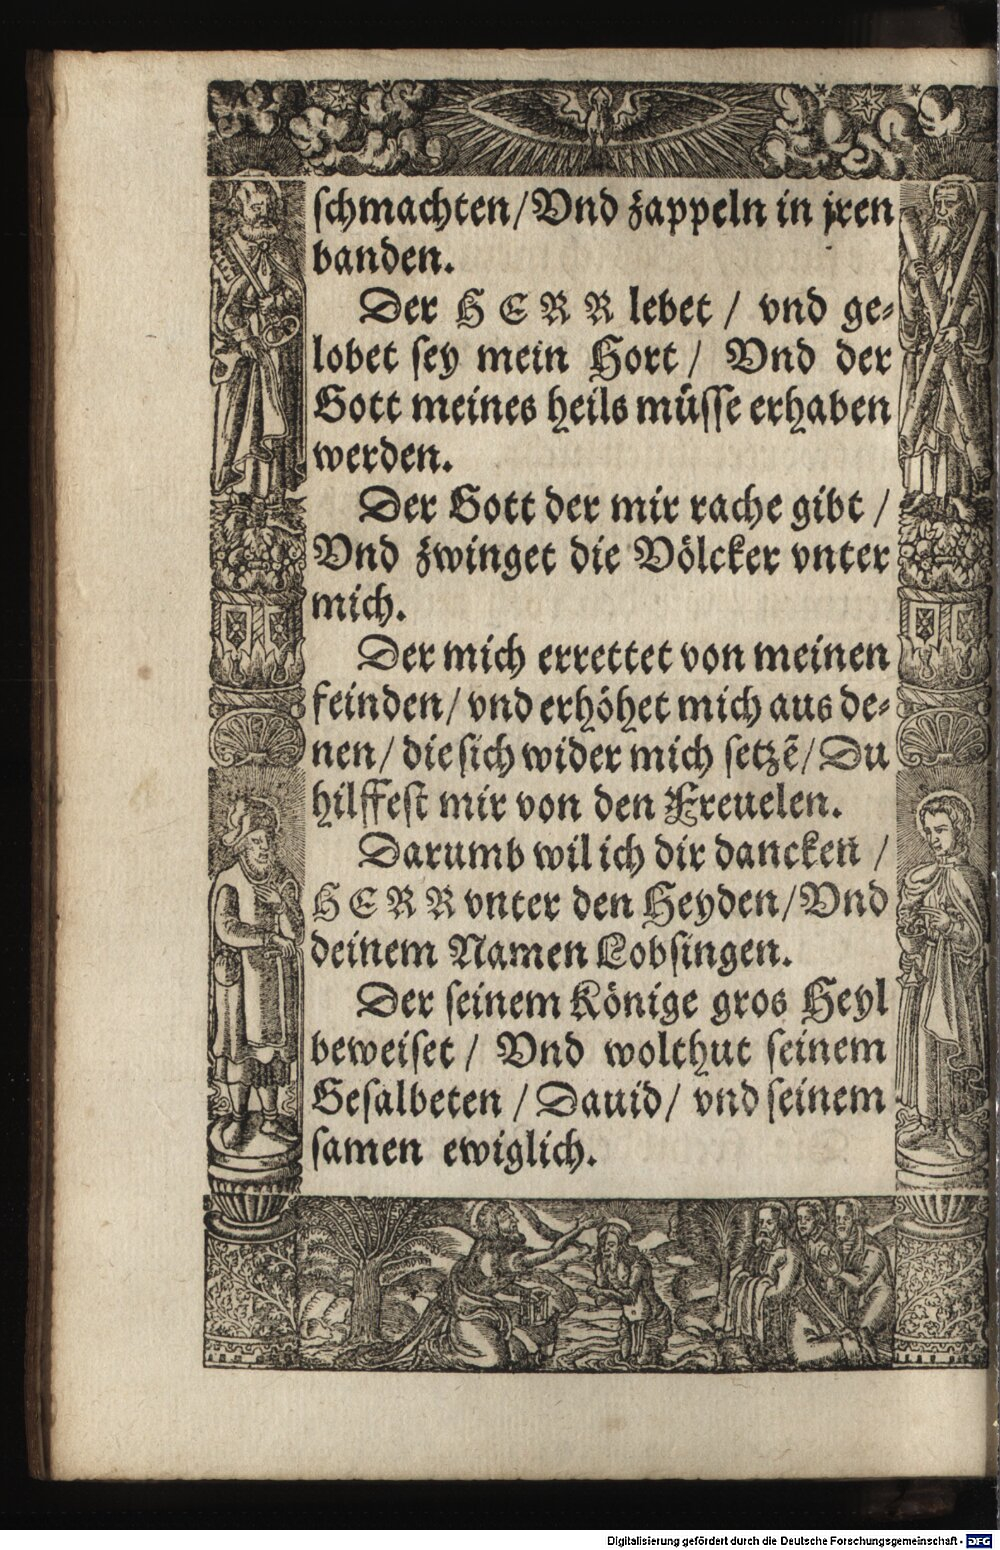 schmachten/Vnd zappeln in jren
banden.
Der HERR lebet / vnd ge-
lobet sey mein Hort / Vnd der
Gott meines heils müsse erhaben
werden.
Der Gott der mir rache gibt /
Vnd zwinget die Völcker vnter
mich.
Der mich errettet von meinen
feinden/ vnd erhöhet mich aus de-
nen/ die sich wider mich setzẽ/ Du
hilffest mir von den Freuelen.
Darumb wil ich dir dancken /
HERR vnter den Heyden/Vnd
deinem Namen Lobsingen.
Der seinem Könige gros Heyl
beweiset / Vnd wolthut seinem
Gesalbeten / Dauid/ vnd seinem
samen ewiglich.
Digitalisierung gefördert durch die Deutsche Forschungsgemeinschaft - DFG